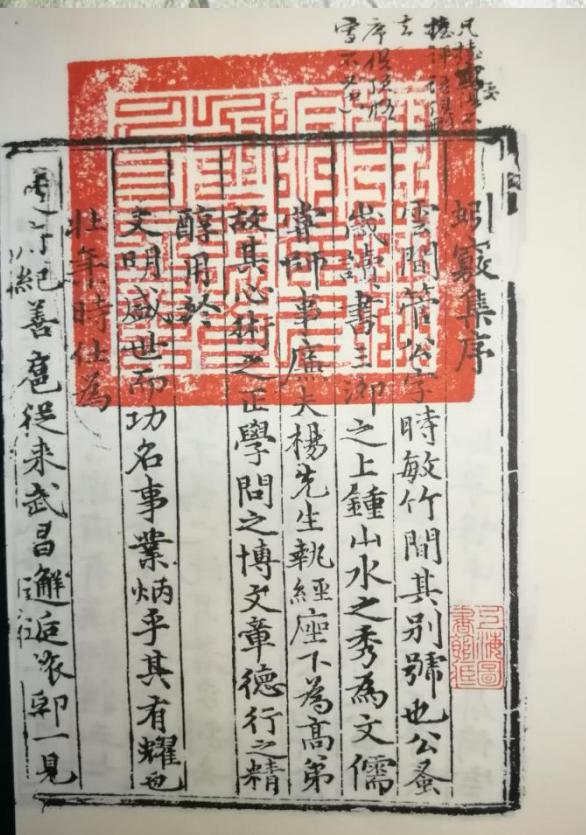 蚓竅集序
雲間管公字時敏竹間其别號也公蚤
歲讀書三泖之上鍾山水之秀為文儒
嘗師事廉夫楊先生執經座下為高弟
故其心術之正學問之博文章德行之精
醇用於
文明盛世而功名事業炳乎其有耀也
壯年時仕為
紀善扈従来武昌邂逅一見
上海圖
書館藏